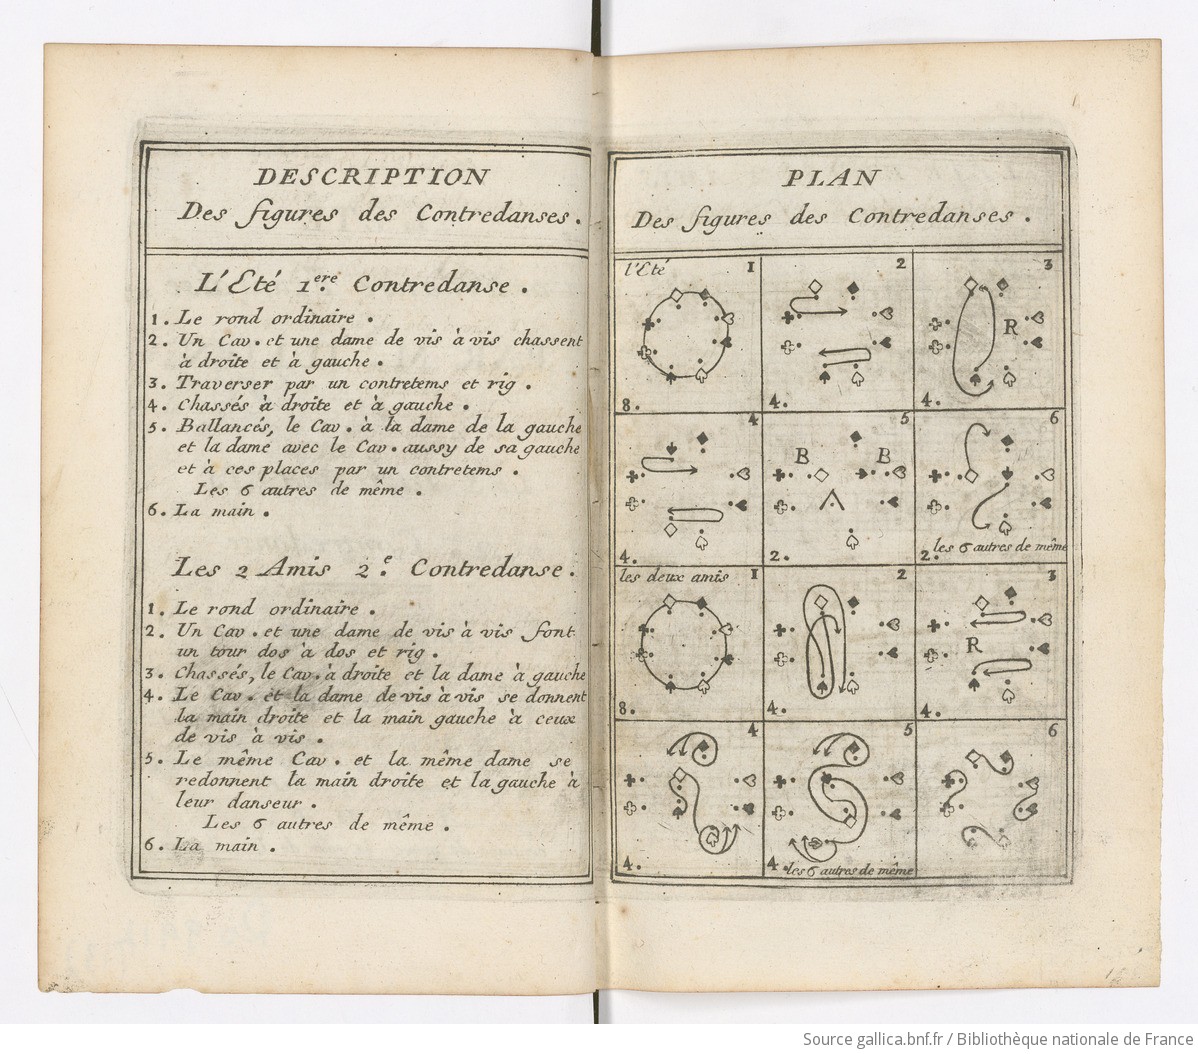 DESCRIPTION
Des figures des Contredanses.
L'Eté 1.ere Contredanse.
1. Le rond ordinaire.
2. Un Cav. et une dame de vis à vis chassent
à droite et à gauche.
3. Traverser par un contretems et rig.
4. Chassés à droite et à gauche.
5. Ballancés, le Cav. à la dame de la gauche
et la dame avec le Cav. aussy de sa gauche
et à ces places par un contretems.
Les 6 autres de même.
6. La main.
Les 2 Amis 2.e Contredanse.
1. Le rond ordinaire.
2. Un Cav. et une dame de vis à vis font
un tour dos à dos et rig.
3. Chassés, le Cav. à droite et la dame à gauche
4. Le Cav. et la dame de vis à vis se donnent
la main droite et la main gauche à ceux
de vis à vis.
5. Le même Cav. et la même dame se
redonnent la main droite et la gauche à
leur danseur.
Les 6 autres de même.
6. La main.
PLAN
Des figures des Contredanses.
l'Eté 1 2 3
R
8. 4. 4.
4 5 6
B B
4. 2. 2. les 6 autres de même
les deux amis 1 2 3
R
8. 4. 4.
4 5 6
4. 4. les 6 autres de même
Source gallica.bnf.fr / Bibliothèque nationale de France